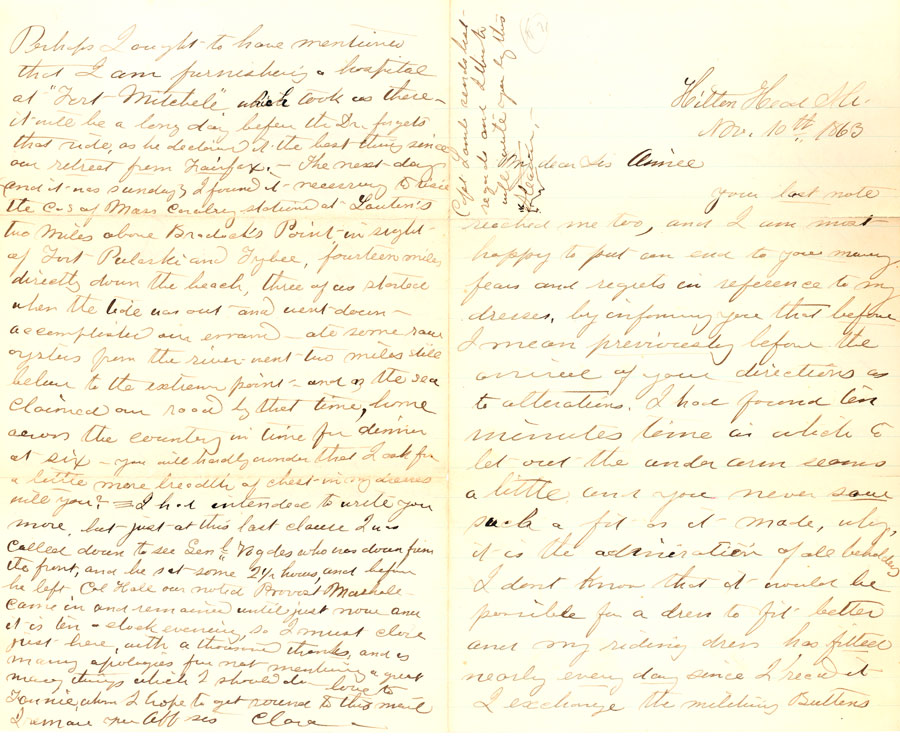 Hilton Head S.C.
Nov. 10th, 1863
My dear Sis Annie
your last note
reached me too, and I am most
happy to put an end to your many
fears and regrets in reference to my
dresses, by informing you that before
I mean previously before the
arrival of your directions as
to alterations. I had found ten
minutes time in which to
let out the under arm seams
a little and you never saw
such a fit as it made, why,
it is the admiration of all beholders
I dont know that it would be
possible for a dress to fit better
and my riding dress has fitted
nearly every day since I had it
I exchange the military Buttons
Perhaps I ought to have mentioned
that I am furnishing a hospital
at "Fort Mitchell" which took us there –
it will be a long day before the Dr. forgets
that ride, as he declared it the best thing since
our retreat from Fairfax. – The next day
and it was sunday, I found it necessary to
the Co G of Mass Cavalry stationed at
two miles above Bradock's Point, in sight
of Fort Pulaski and Tybee, fourteen miles
directly down the beach, three of us started
when the tide was out – and went down –
accomplished our errand – ate some raw
oysters from the river went two miles still
below to the extreme point – and as the sea
claimed our road by that time, home
across the country in time for dinner
at six – you will hardly wonder that I ask for
a little more breadth of chest in my dresses
will you? – I had intended to write you
more, but just at this last clause I was
called down to see Genl. Vogdes who was down from
the front, and he sat some 2½ hours, and before
he left, Col Hall our noted Provost Marshal
came in and remained until just now and
it is ten – clock evening, so I must close
just here, with a thousand thanks, and as
many apologies for not mentioning a great
many things which I should do – love to
Fannie whom I hope to get round to this mail
I am your aff sis Clara –
Capt Lamb sends best
regards and thanks
will write you by this